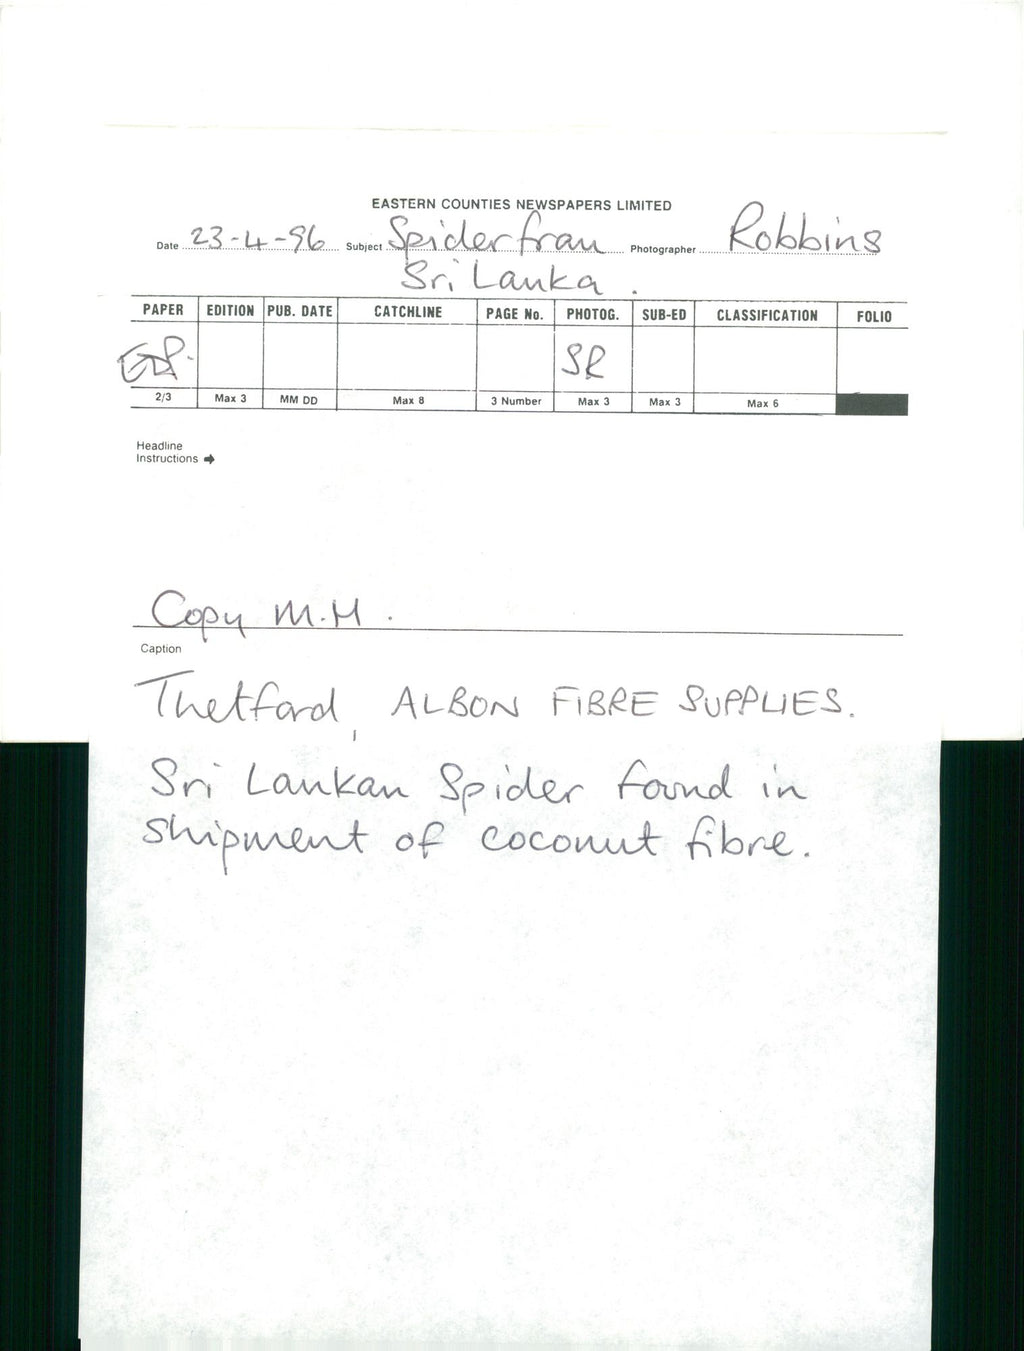 EASTERN COUNTIES NEWSPAPERS LIMITED
Date 23-4-96 Subject Spider from Photographer Robbins
Sri Lanka.
PAPER EDITION PUB. DATE CATCHLINE PAGE No. PHOTOG. SUB-ED CLASSIFICATION FOLIO
SR
2/3 Max 3 MM DD Max 8 3 Number Max 3 Max 3 Max 6
Headline
Instructions ➔
Copy M.H.
Caption
Thetford, ALBON FIBRE SUPPLIES.
Sri Lankan Spider found in
shipment of coconut fibre.